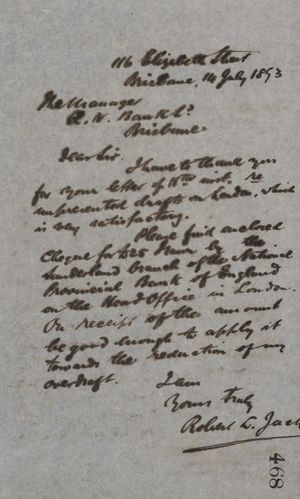 116 Elizabeth Street
Brisbane, 14 July 1893
The Manager
Q. N. Bank Ld
Brisbane
Dear Sir.
I have to thank you
for your letter of inst. re
unpresented drafts on London, which
is very satisfactory.
Please find enclosed
Cheque for £25 by the
Sunderland branch of the National
Provincial Bank of England
on the Head Office in London.
On receipt of the amount
be good enough to apply it
towards the reduction of my
overdraft.
I am
Yours truly
Robert L. Jack
468